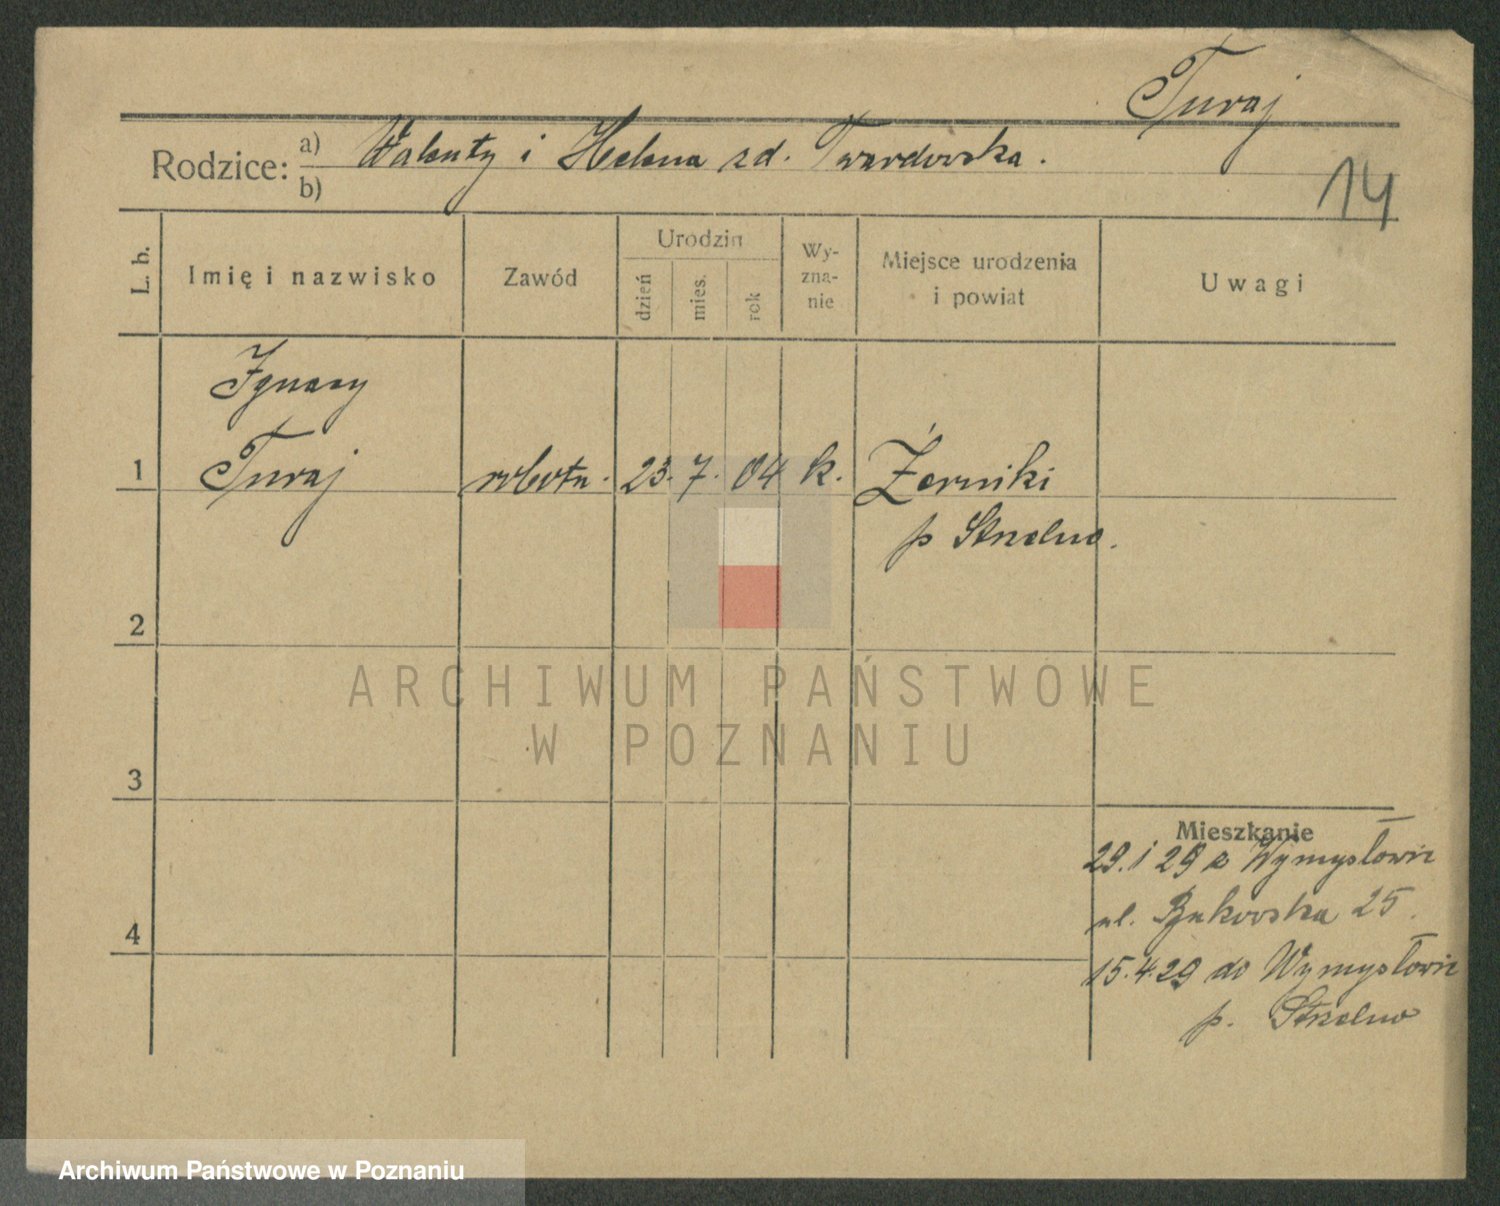 Turaj
Rodzice: a) Walenty i Helena zd. Twardowska.
b)
14
L. b.
Imię i nazwisko
Zawód
Urodzin
dzień
mies.
rok
Wy-
zna-
nie
Miejsce urodzenia
i powiat
Uwagi
Ignacy
1 Turaj robotn. 23. 7. 04 k. Żerniki
p Strzelno.
2
ARCHIWUM PAŃSTWOWE
W POZNANIU
3
Mieszkanie
29.1 29 z Wymysłowic
ul. Bukowska 25.
4
15.4.29 do Wymysłowic
p. Strzelno
Archiwum Państwowe w Poznaniu